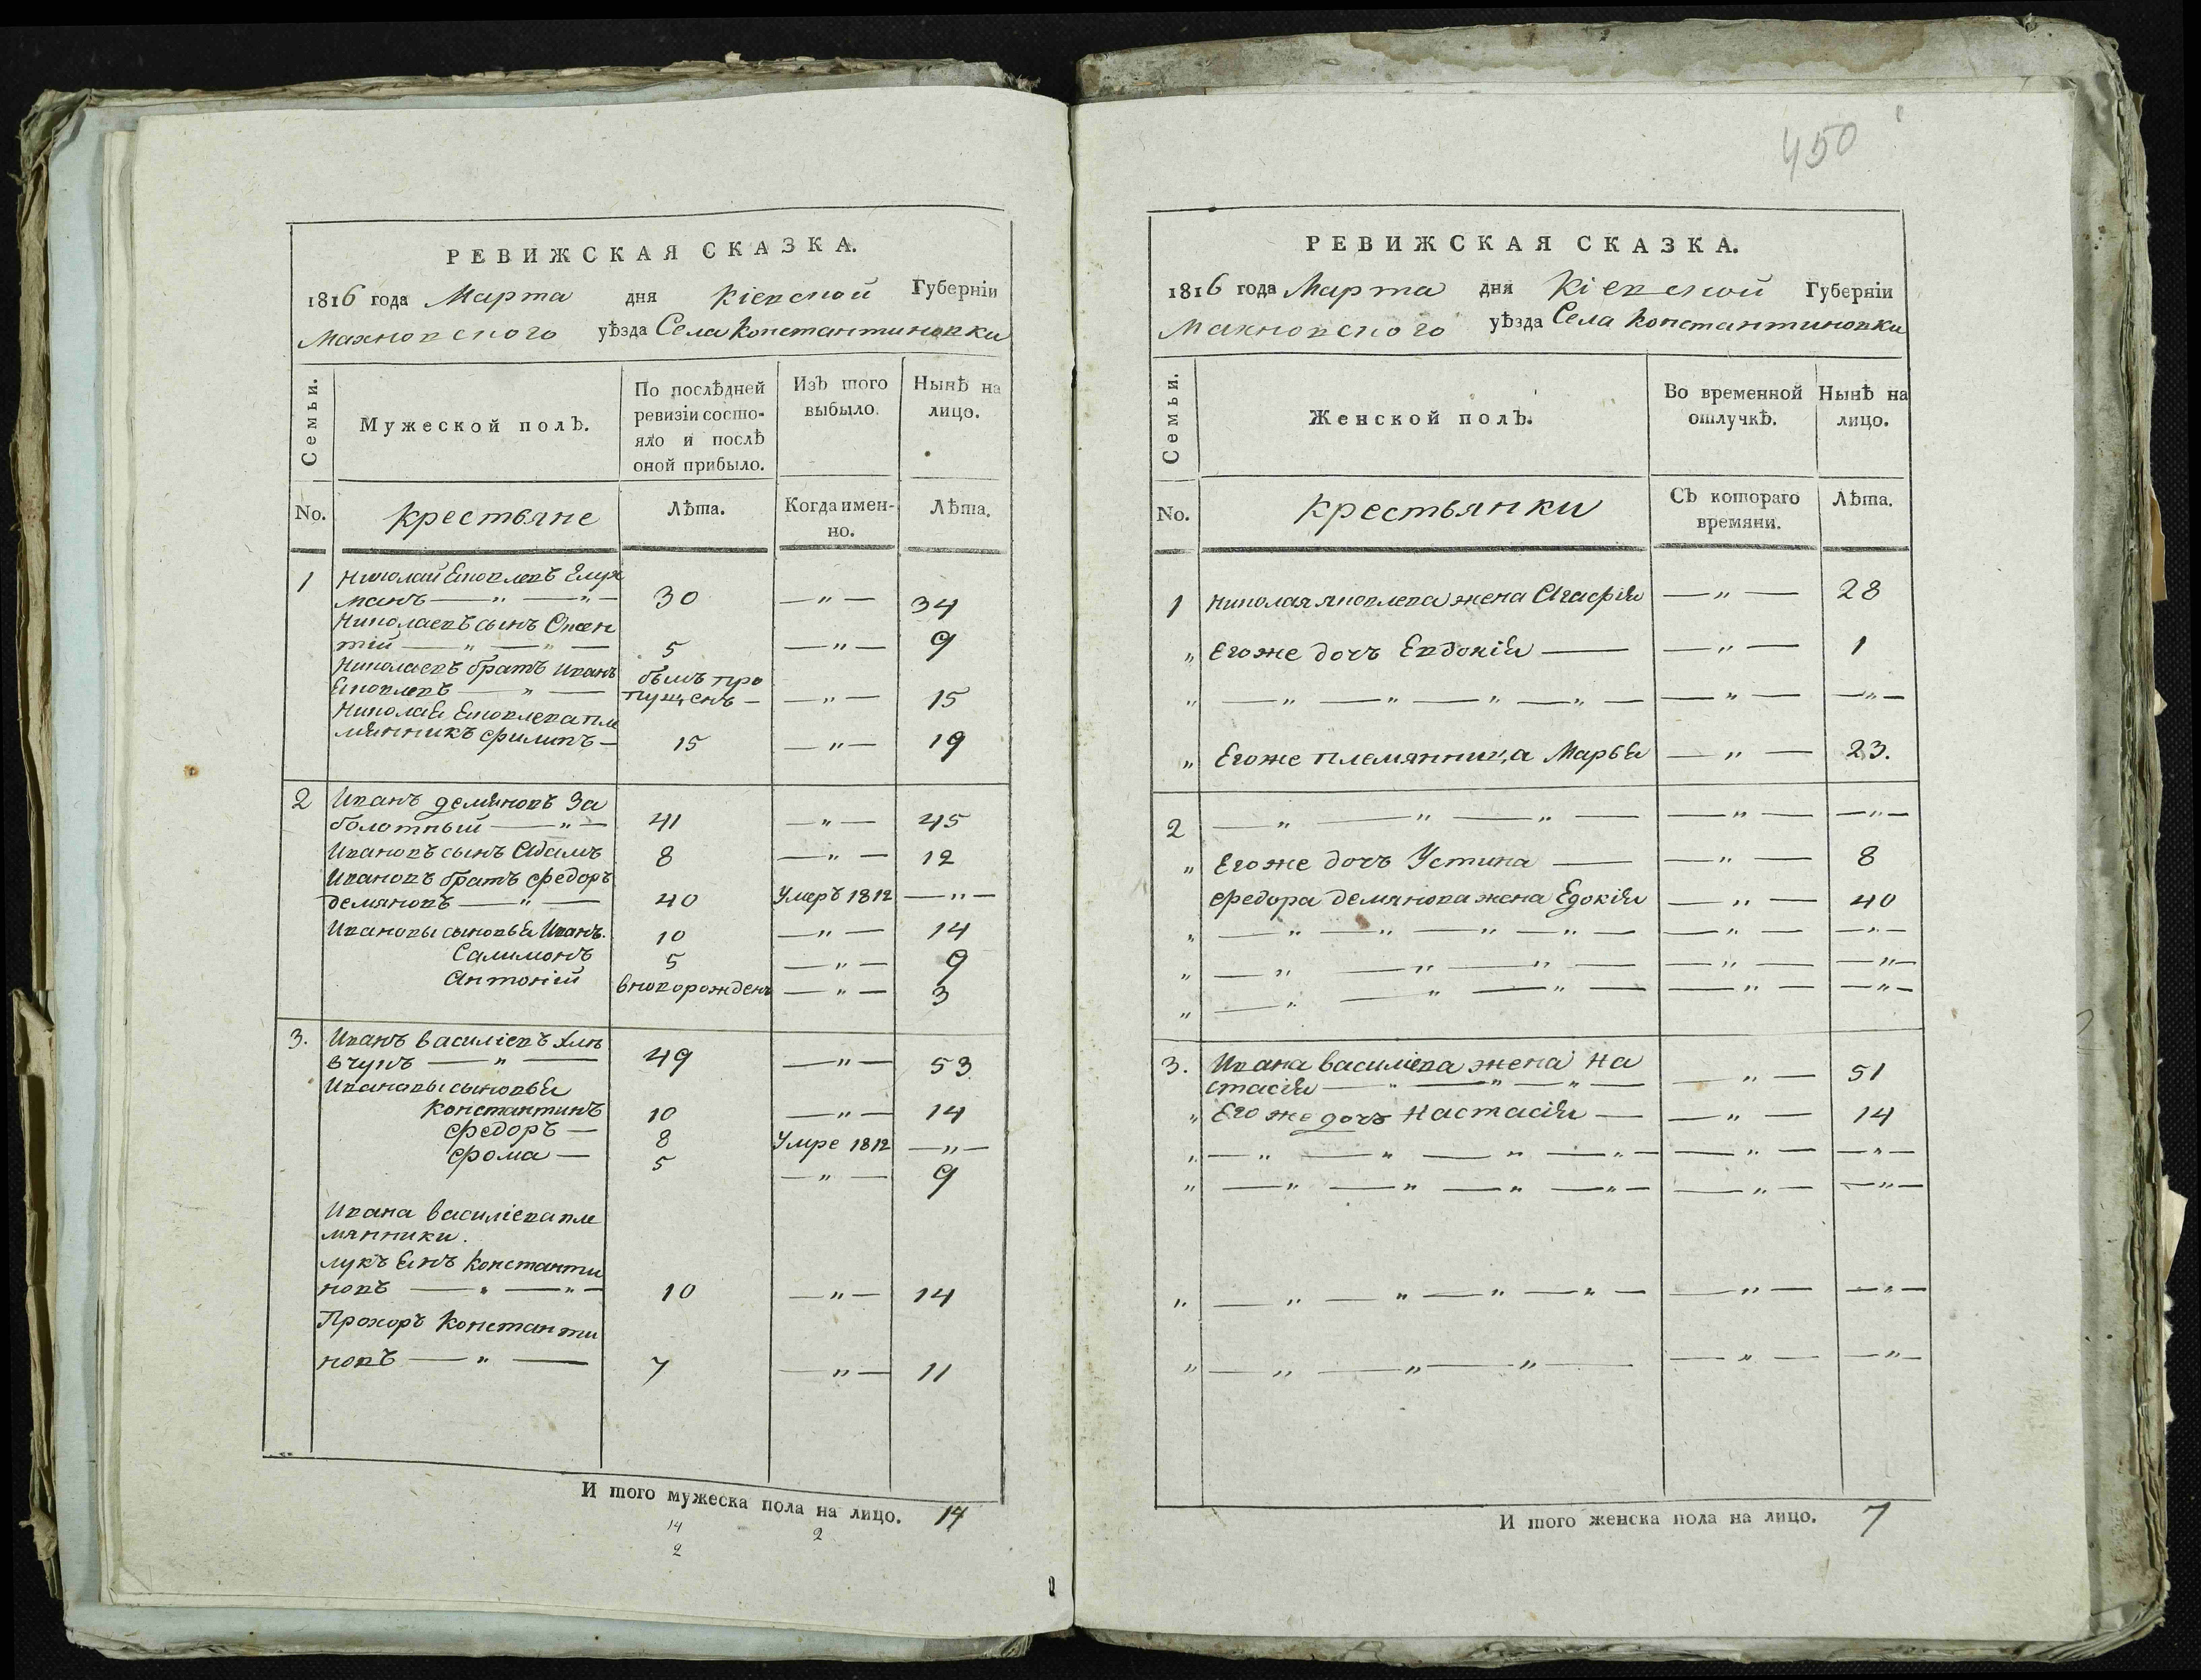 РЕВИЖСКАЯ СКАЗКА.
1816 года Марта дня Кіевской Губерніи
Махновского уѣзда Села Константиновки
Семьи.
Мужеской полъ.
По послѣдней ревизіи состояло и послѣ оной прибыло.
Изъ того выбыло.
Нынѣ на лицо.
No.
крестьяне
Лѣта.
Когда именно.
Лѣта.
1 Николай Яковлевъ
манъ — " — " — 30 — " — 34
Николаевъ сынъ
тій — " — " — 5 — " — 9
Николаевъ братъ Иванъ былъ про
Яковлевъ — " — пущенъ — — " — 15
Николая Яковлева пле
мянникъ Филипъ — 15 — " — 19
2 Иванъ Демяновъ За
болотный — " — 41 — " — 45
Ивановъ сынъ Адамъ 8 — " — 12
Ивановъ братъ Федоръ
Демяновъ — " — 40 Умеръ 1812 — " —
Ивановы сыновья Иванъ. 10 — " — 14
Салимонъ 5 — " — 9
Антоній вноворожденъ — " — 3
3. Иванъ Василіевъ
вчукъ — " — 49 — " — 53
Ивановы сыновья
Константинъ 10 — " — 14
Федоръ — 8 Умре 1812 — " —
Фома — 5 — " — 9
Ивана Василіева пле
мянники.
Лукъянъ Константи
новъ — " — " — 10 — " — 14
Прохоръ Константи
новъ — " — 7 — " — 11
И того мужеска пола на лицо. 14
14 2
2
450
РЕВИЖСКАЯ СКАЗКА.
1816 года Марта дня Кіевской Губерніи
Махновского уѣзда Села Константиновки
Семьи.
Женской полъ.
Во временной отлучкѣ.
Нынѣ на лицо.
No.
крестьянки
Съ котораго времяни.
Лѣта.
1 Николая Яковлева жена Агафія — " — 28
" Егоже дочъ Евдокія — — " — 1
" — " — " — " — " — — " — — " —
" Егоже племянница Марья — " — 23.
2 — " — " — " — — " — — " —
" Егоже дочъ Устина — — " — 8
Федора Демянова жена Едокія — " — 40
" — " — " — " — " — — " — — " —
" — " — " — " — — " — — " —
" — " — " — " — — " — — " —
3. Ивана Василіева жена На
стасія — " — " — " — — " — 51
" Его же дочъ Настасія — — " — 14
" — " — " — " — " — — " — — " —
" — " — " — " — " — — " — — " —
" — " — " — " — " — — " — — " —
" — " — " — " — — " — — " —
И того женска пола на лицо. 7